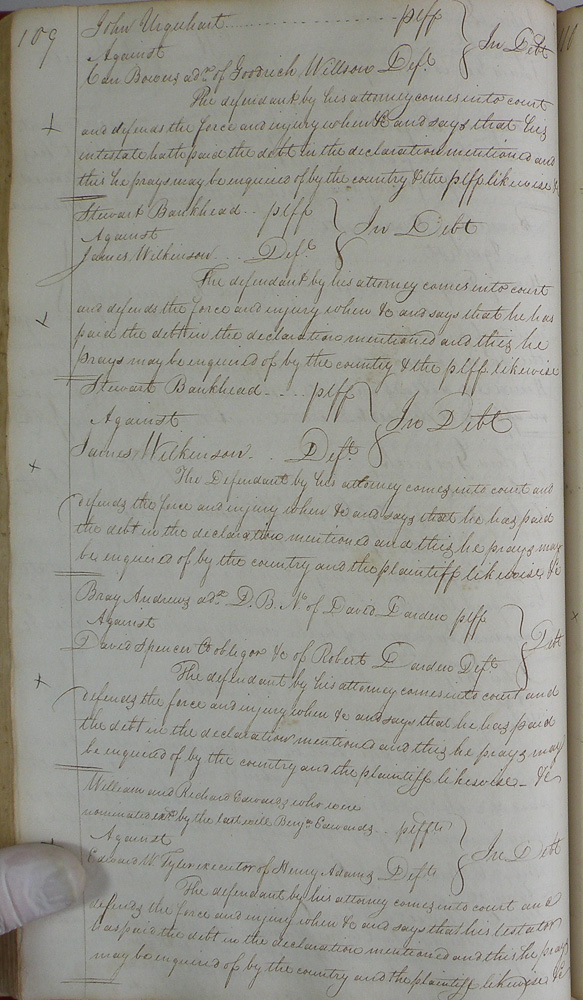 109
John Urquhart ........ plff } In Debt
Against
Carr Bowers adr. of Goodrich Willson Deft.
The defendant by his attorney comes into court
and defends the force and injury when &c and says that his
intestate hath paid the debt in the declaration mentioned and
this he prays may be enquired of by the country & the plff likewise &c
Stewart Bankhead .. plff } In Debt
Against
James Wilkinson .... Deft.
The defendant by his attorney comes into court
and defends the force and injury when &c and says that he has
paid the debt in the declaration mentioned and this he
prays may be enquired of by the country & the plff likewise
Stewart Bankhead .... plff } In Debt
Against
James Wilkinson .. Deft.
The Defendant by his attorney comes into court and
defends the force and injury when &c and says that he has paid
the debt in the declaration mentioned and this he prays may
be enquired of by the country and the plaintiff likewise &c
Bray Andrews adr. D. B. N. of David Darden plff } Debt
Against
David Spencer Co obligor &c of Robert Darden Deft
The defendant by his attorney comes into court and
defends the force and injury when &c and says that he has paid
the debt in the declaration mentioned and this he prays may
be enquired of by the country and the plaintiff likewise - &c
William and Richard Edwards who were
nominated exr. by the last will Benjn. Edwards .. peffts } In Debt
Against
Edward W Tyler executor of Henry Adams Defts
The defendant by his attorney comes into court and
defends the force and injury when &c and says that his testator
has paid the debt in the declaration mentioned and this he prays
may be enquired of by the country and the plaintiff likewise &c